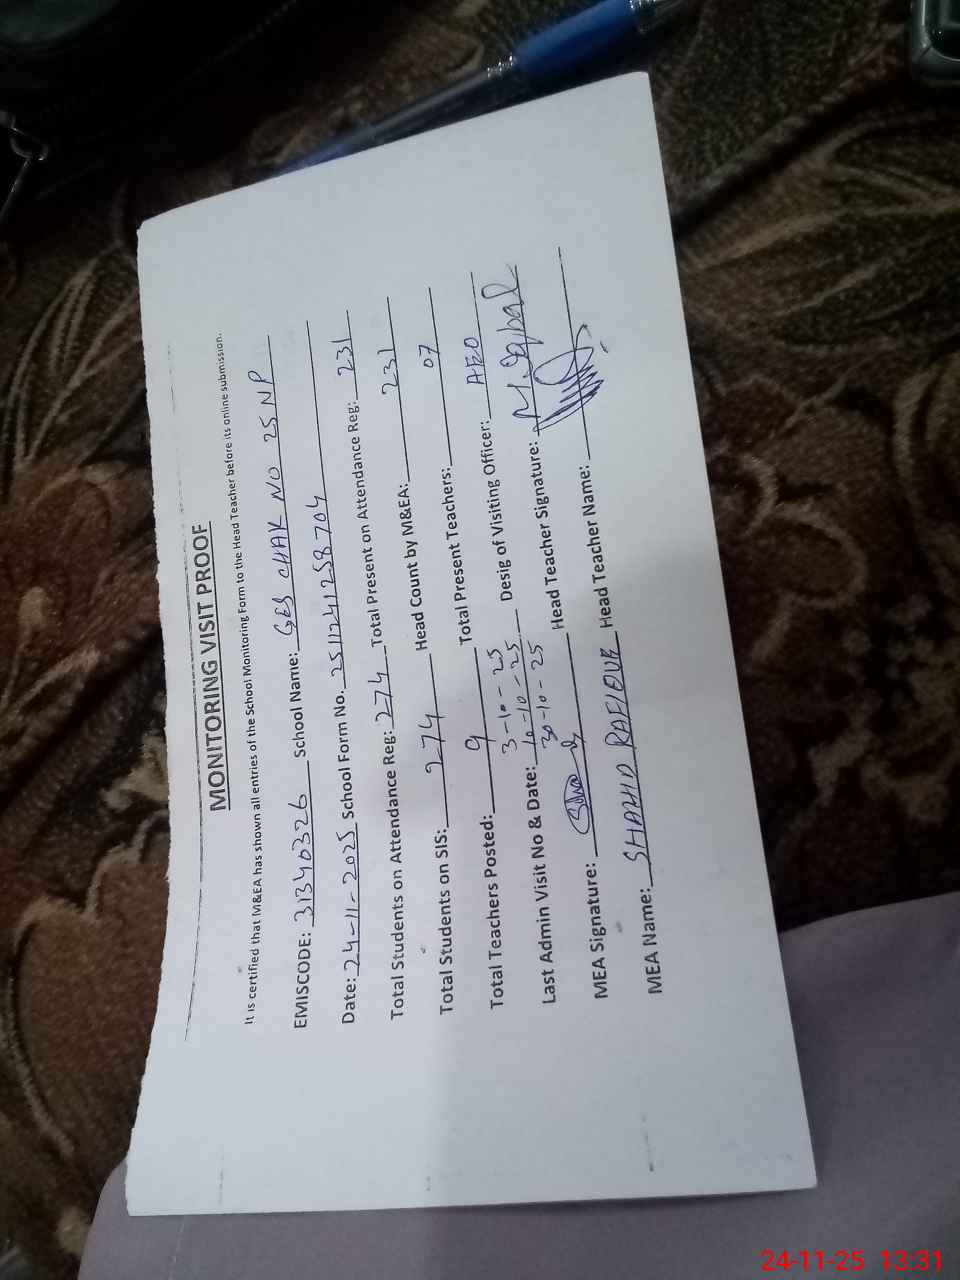 MONITORING VISIT PROOF
It is certified that M&EA has shown all entries of the School Monitoring Form to the Head Teacher before its online submission.
EMISCODE: 31340326 School Name: GES CHAK NO 25 NP
Date: 24-11-2025 School Form No. 2511241258704
Total Students on Attendance Reg: 274 Total Present on Attendance Reg: 231
Total Students on SIS: 274 Head Count by M&EA: 231
Total Teachers Posted: 9 Total Present Teachers: 07
3-10-25
Last Admin Visit No & Date: 10-10-25 Desig of Visiting Officer: AEO
30-10-25
MEA Signature: Head Teacher Signature: M. Iqbal
MEA Name: SHAHID RAFIQUE Head Teacher Name:
24-11-25 13:31